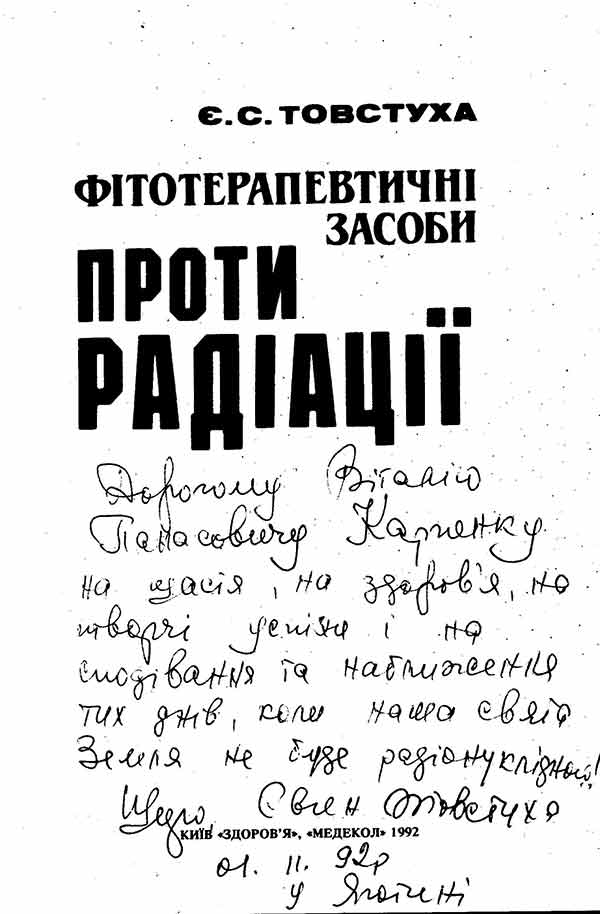 Є.С.ТОВСТУХА
ФІТОТЕРАПЕВТИЧНІ
ЗАСОБИ
ПРОТИ
РАДІАЦІЇ
Дорогому Віталію
Панасовичу Карпенку
на щастя, на здоров'я, на
творчі успіхи і на
сподівання та наближення
тих днів, коли наша свята
Земля не буде радіонуклідною!
Щиро, Євген Товстуха
КИЇВ «ЗДОРОВ'Я», «МЕДЕКОЛ» 1992
01. 11. 92р
у Яготині